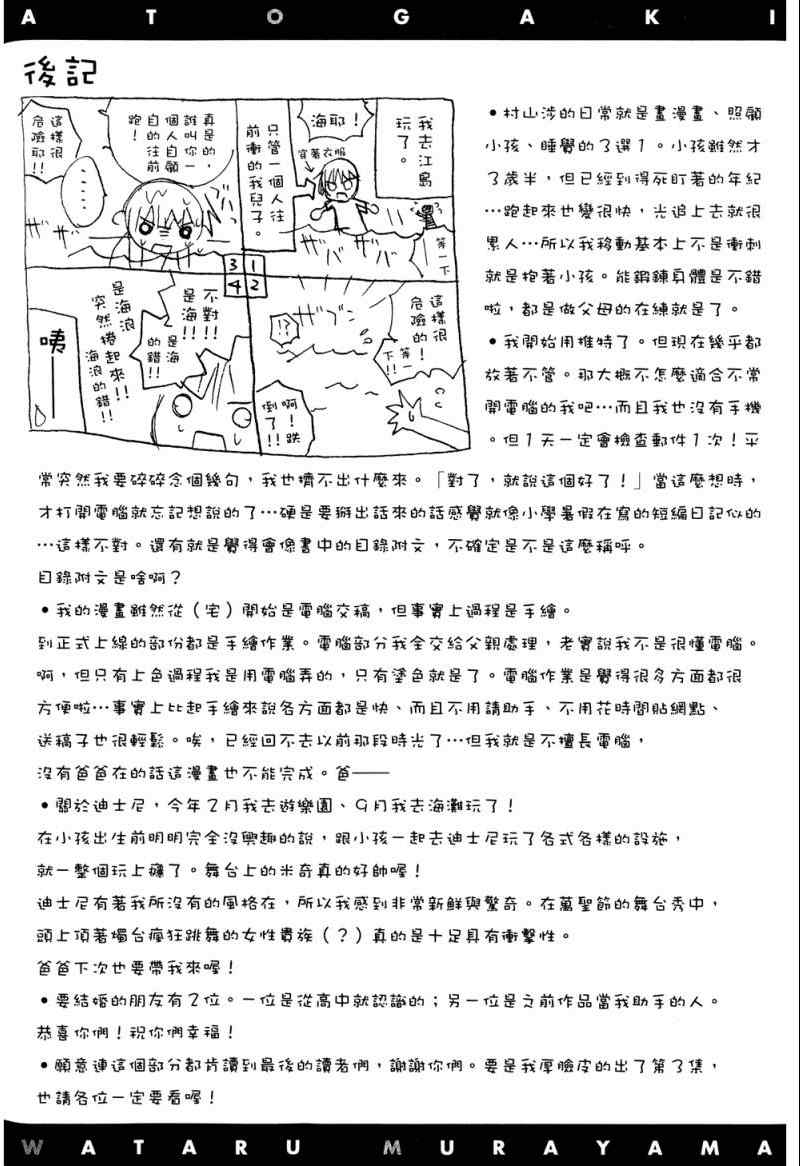 ATOGAKI
後記
我去江島
玩了。
海耶！
穿著衣服
等一下
ザバ
ザバ
只管一個人往
前衝的我兒子。
1
2
3
4
這樣很
危險的！
等一
下！
ザブン
!?
啊！跌
倒了!!
真是的，
誰叫你一
個人自顧
自的往前
跑！
……
這樣很
危險耶!!
不對!!
是海!!
是海
的錯!!
是海浪
突然捲起來!!
海浪的錯!!
咦——
•村山涉的日常就是畫漫畫、照顧
小孩、睡覺的3選1。小孩雖然才
3歲半，但已經到得死盯著的年紀
…跑起來也變很快，光追上去就很
累人…所以我移動基本上不是衝刺
就是抱著小孩。能鍛鍊身體是不錯
啦，都是做父母的在練就是了。
•我開始用推特了。但現在幾乎都
放著不管。那大概不怎麼適合不常
開電腦的我吧…而且我也沒有手機
。但1天一定會檢查郵件1次！平
常突然我要碎碎念個幾句，我也擠不出什麼來。「對了，就說這個好了！」當這麼想時，
才打開電腦就忘記想說的了…硬是要掰出話來的話感覺就像小學暑假在寫的短編日記似的
…這樣不對。還有就是覺得會像書中的目錄附文，不確定是不是這麼稱呼。
目錄附文是啥啊？
•我的漫畫雖然從（宅）開始是電腦交稿，但事實上過程是手繪。
到正式上線的部份都是手繪作業。電腦部分我全交給父親處理，老實說我不是很懂電腦。
啊，但只有上色過程我是用電腦弄的，只有塗色就是了。電腦作業是覺得很多方面都很
方便啦…事實上比起手繪來說各方面都是快、而且不用請助手、不用花時間貼網點、
送稿子也很輕鬆。唉，已經回不去以前那段時光了…但我就是不擅長電腦，
沒有爸爸在的話這漫畫也不能完成。爸——
•關於迪士尼，今年2月我去遊樂園、9月我去海灘玩了！
在小孩出生前明明完全沒興趣的說，跟小孩一起去迪士尼玩了各式各樣的設施，
就一整個玩上癮了。舞台上的米奇真的好帥喔！
迪士尼有著我所沒有的風格在，所以我感到非常新鮮與驚奇。在萬聖節的舞台秀中，
頭上頂著燭台瘋狂跳舞的女性貴族（？）真的是十足具有衝擊性。
爸爸下次也要帶我來喔！
•要結婚的朋友有2位。一位是從高中就認識的；另一位是之前作品當我助手的人。
恭喜你們！祝你們幸福！
•願意連這個部分都肯讀到最後的讀者們，謝謝你們。要是我厚臉皮的出了第3集，
也請各位一定要看喔！
WATARU MURAYAMA